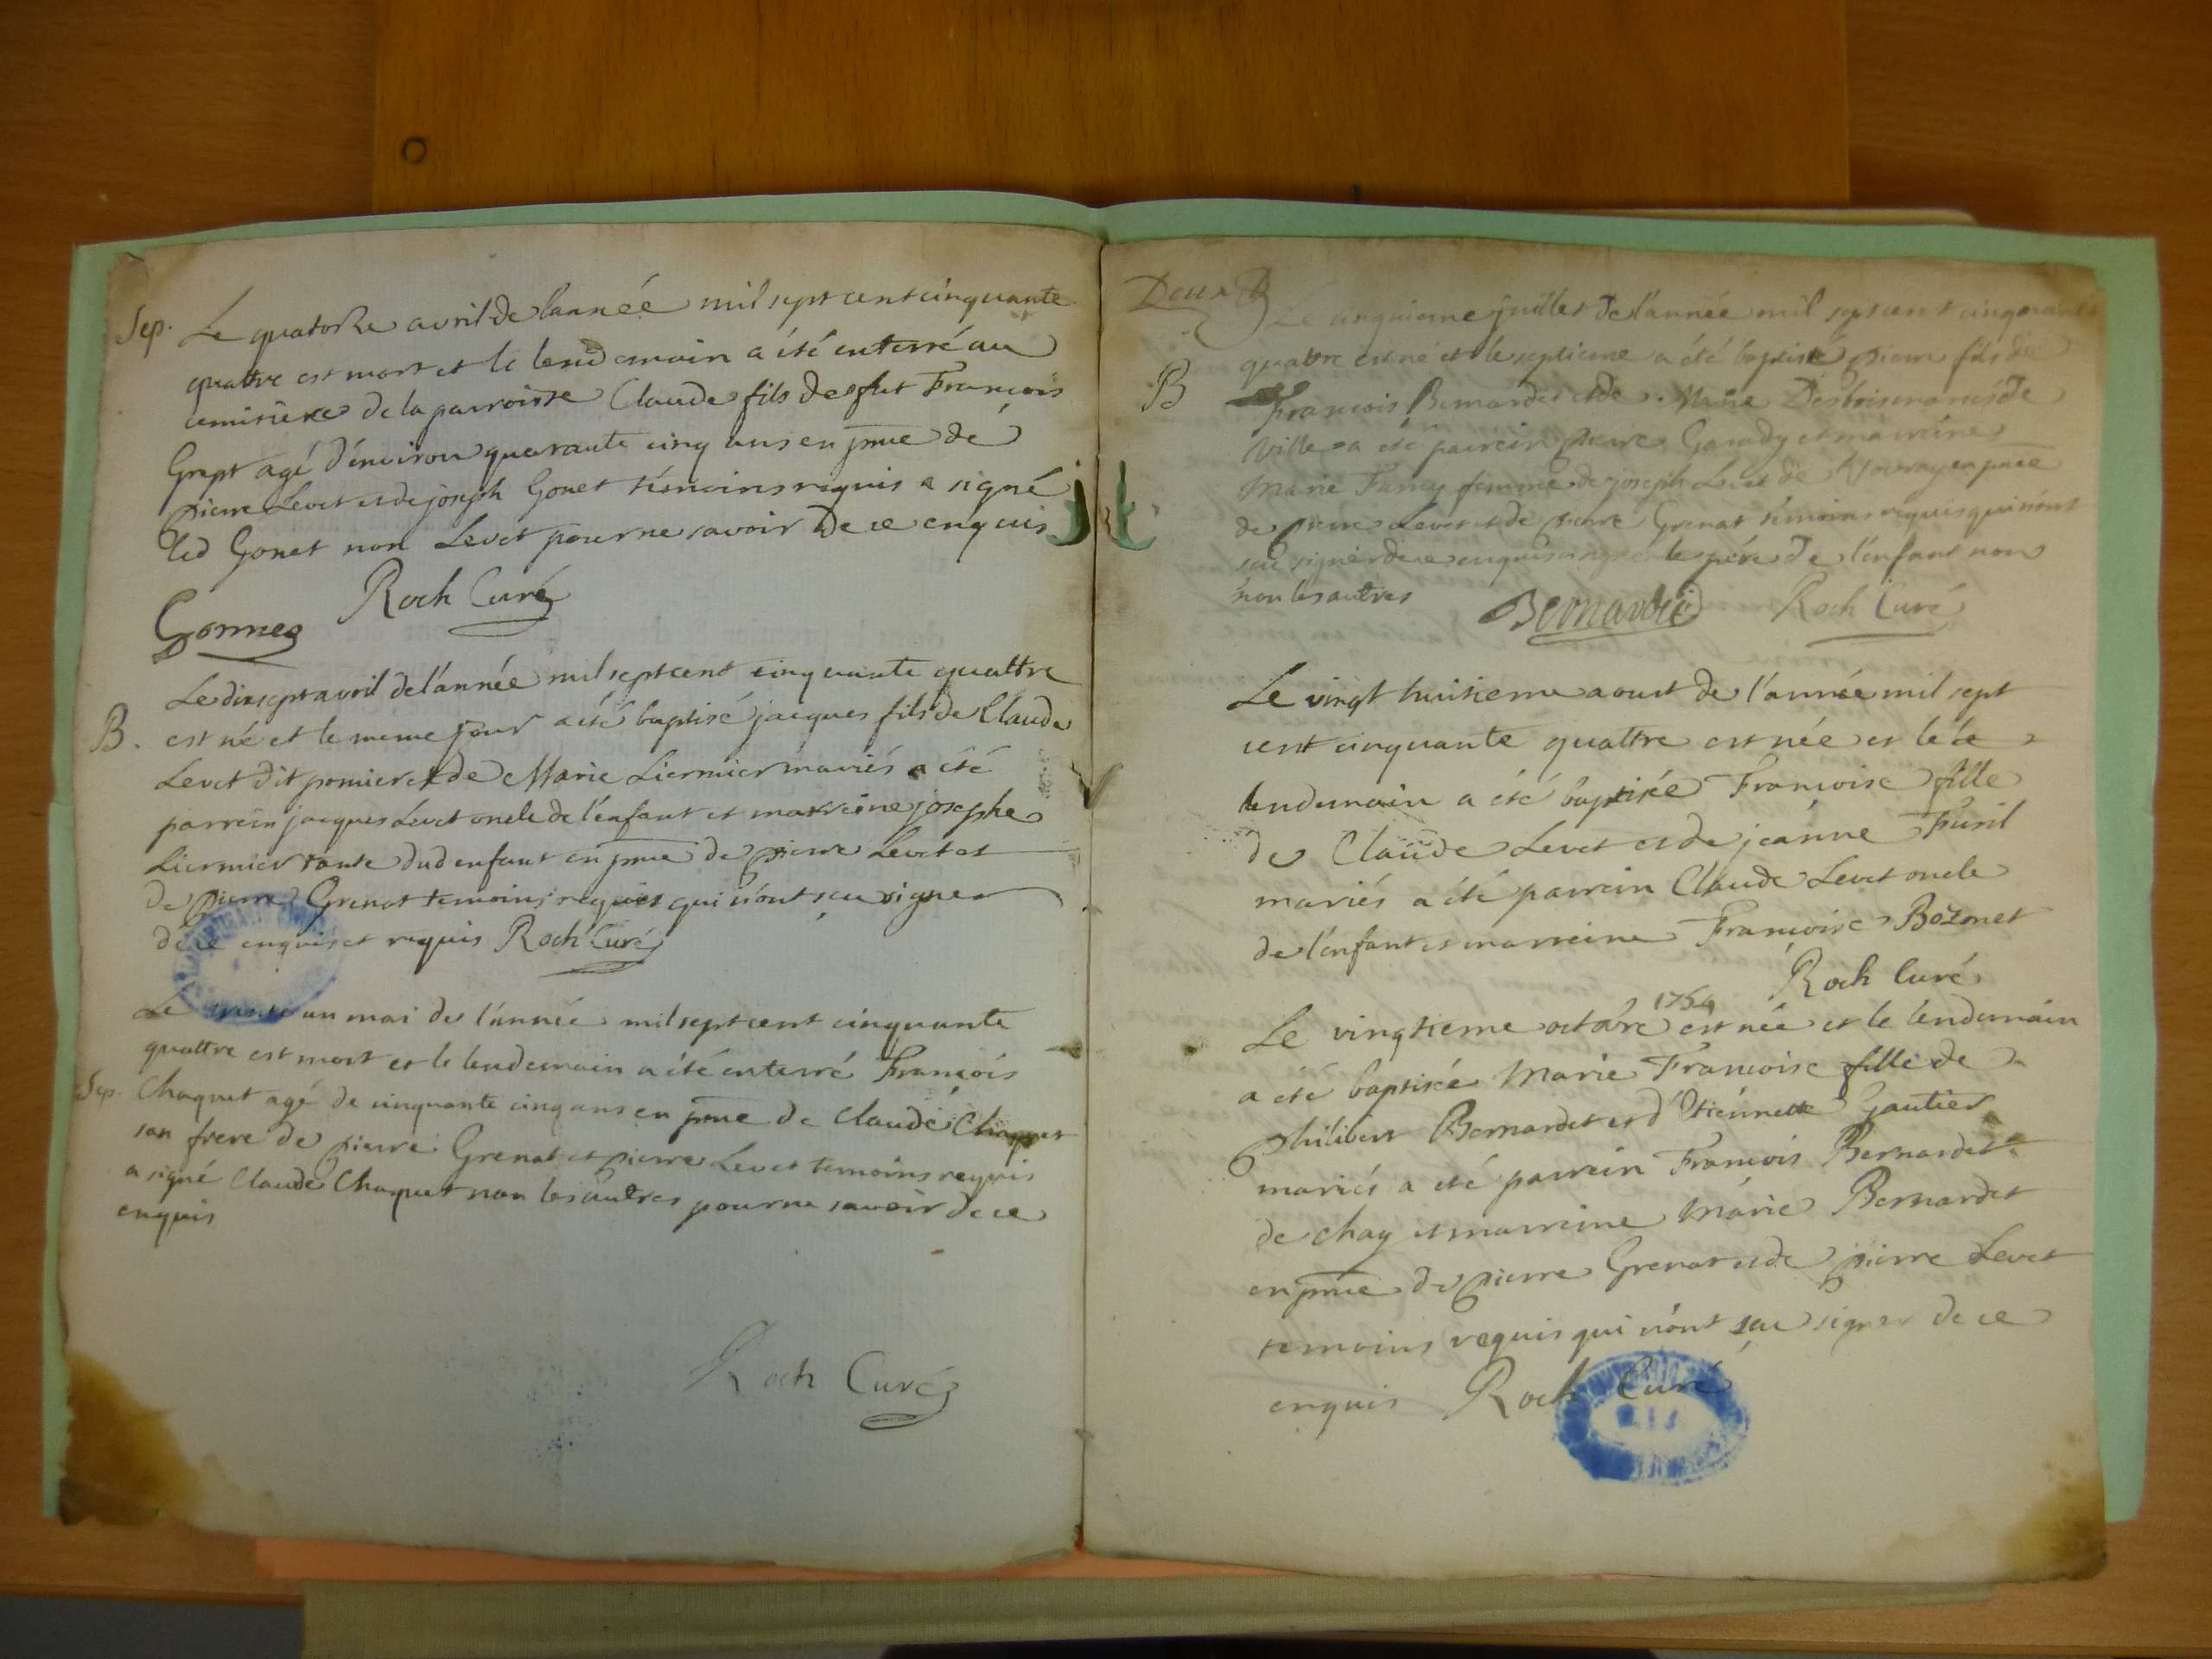 Sep. Le quatorze avril de lannéé mil sept cent cinquante
quattre est mort et le lendemain a été enterré au
cemitiere de la parroisse Claude fils de fut François
Grept agé d'environ quarante cinq ans en pnce de
pierre Levet et de joseph Gonet témoins requis a signé
led Gonet non Levet pour ne savoir de ce enquis
Roch Curé
Gonnet
Le dixsept avril de l'année mil sept cent cinquante quattre
B. est né et le meme jour a été baptisé jacques fils de Claude
Levet dit pomier et de Marie Liermier mariés a été
parrein jacques Levet oncle de l'enfant et marreine josephe
Liermier tante dud enfant en pnce de pierre Levet et
de pierre Grenat temoins requis qui n'ont seu signer
de ce enquis et requis Roch Curé
Le trente un mai de l'année mil sept cent cinquante
quattre est mort et le lendemain a été enterré François
Sep. Chaquet agé de cinquante cinq ans en pnce de Claude Chaquet
son frere de pierre Grenat et pierre Levet temoins requis
a signé Claude Chaquet non les autres pour ne savoir de ce
enquis
Roch Curé
Deux
Le cinquieme juillet de l'année mil sept cent cinquante
B quatre est né et le septieme a été baptisé pierre fils de
François Bernardet et de Marie Desbois mariés de
ville a été parrein pierre et marreine
Marie femme de joseph Levet de en pnce
de pierre Levet et de pierre Grenat témoins requis qui n'ont
seu signer de ce enquis a signé le pére de l'enfant non
non les autres Bernardet Roch Curé
Le vingt huitieme aoust de l'année mil sept
cent cinquante quattre est née et le le
lendemain a été baptisée Françoise fille
de Claude Levet et de jeanne Fusil
mariés a été parrein Claude Levet oncle
de l'enfant et marreine Françoise Bozonet
Roch Curé
1754
Le vingtieme octobre est née et le lendemain
a été baptisée Marie Françoise fille de
philibert Bernardet et d'Etiennette Gautier
mariés a été parrein François Bernardet
de Chay et marreine Marie Bernardet
en pnce de pierre Grenat et de pierre Levet
temoins requis qui n'ont seu signer de ce
enquis Roch Curé